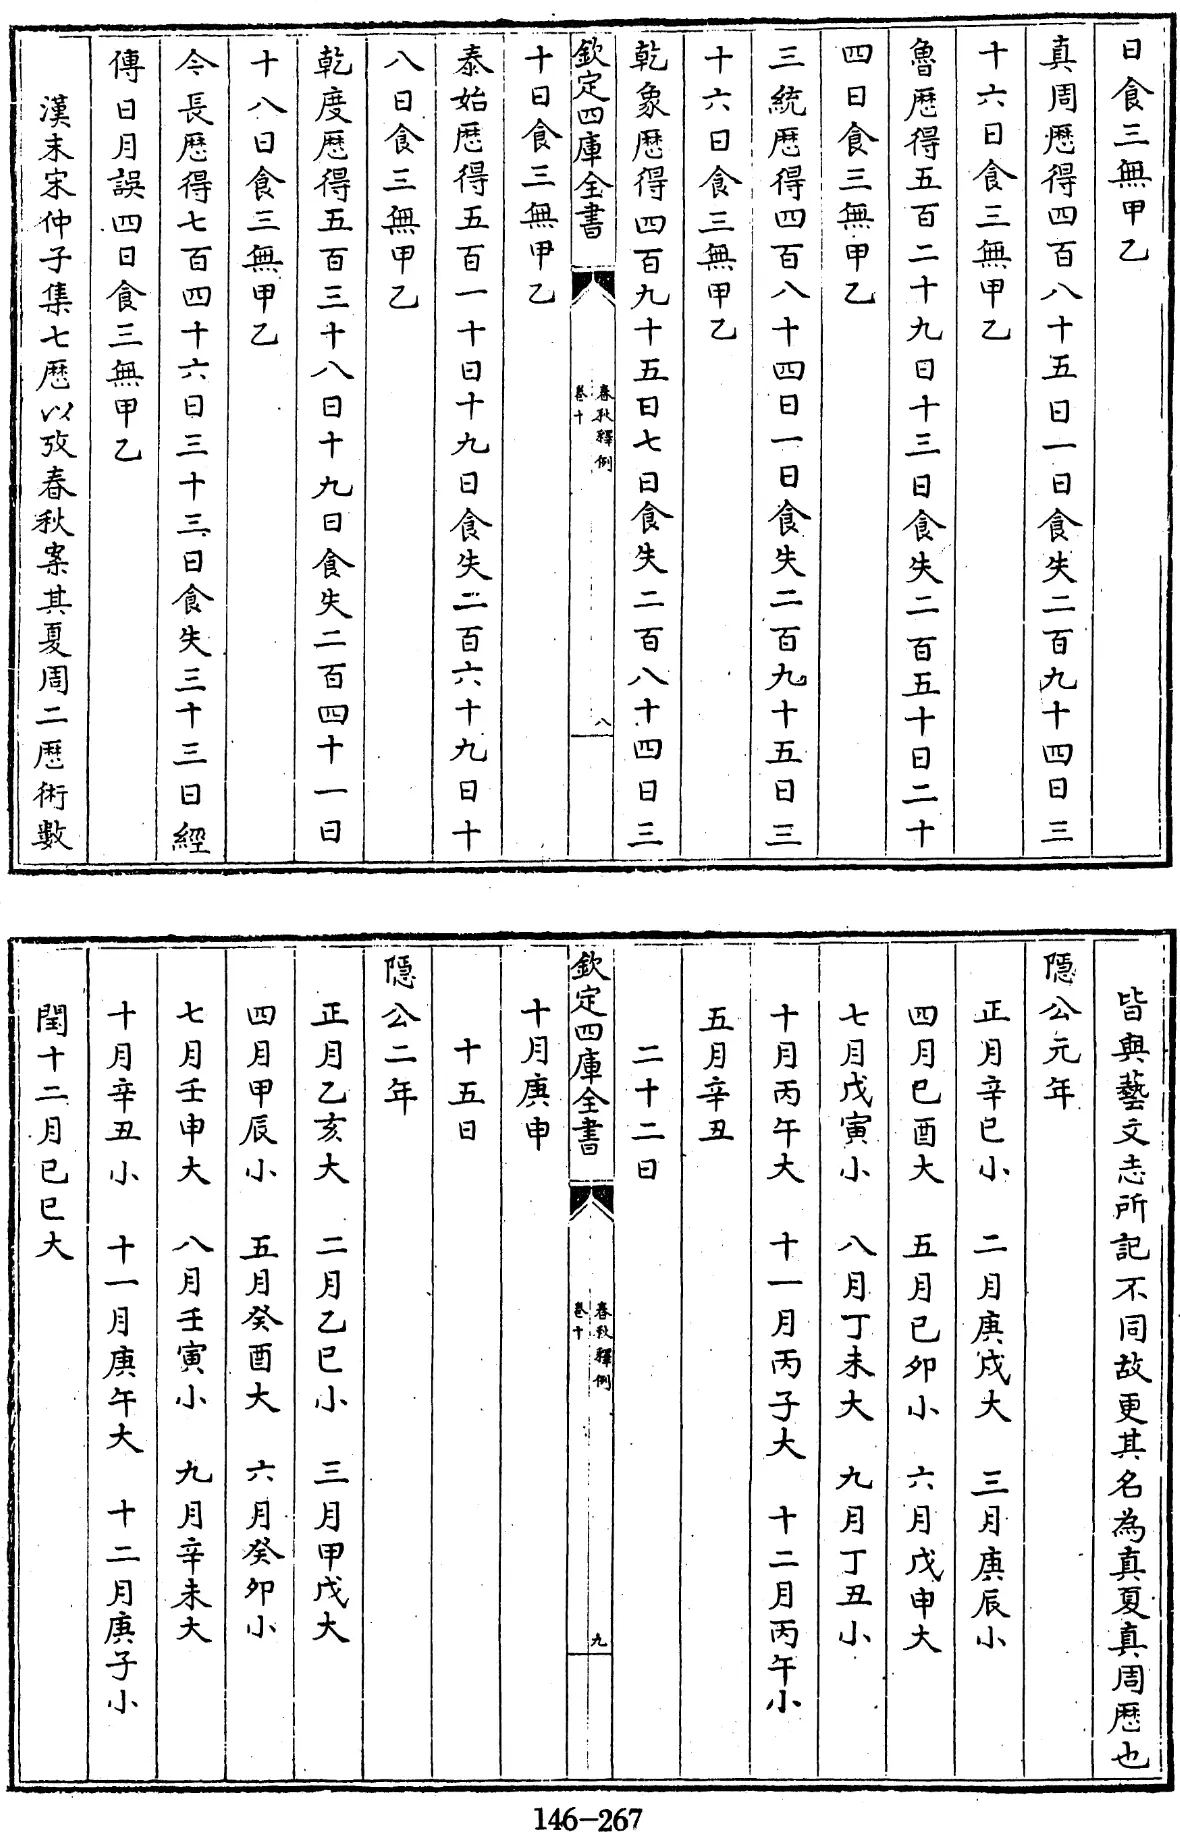 日食三無甲乙
真周厯得四百八十五日一日食失二百九十四日三
十六日食三無甲乙
魯厯得五百二十九日十三日食失二百五十日二十
四日食三無甲乙
三統厯得四百八十四日一日食失二百九十五日三
十六日食三無甲乙
乾象厯得四百九十五日七日食失二百八十四日三
欽定四庫全書
春秋釋例
卷十
八
十日食三無甲乙
泰始厯得五百一十日十九日食失二百六十九日十
八日食三無甲乙
乾度厯得五百三十八日十九日食失二百四十一日
十八日食三無甲乙
今長厯得七百四十六日三十三日食失三十三日經
傳日月誤四日食三無甲乙
漢末宋仲子集七厯以攷春秋案其夏周二厯術數
皆與藝文志所記不同故更其名為真夏真周厯也
隱公元年
正月辛巳小　二月庚戌大　三月庚辰小
四月巳酉大　五月巳卯小　六月戊申大
七月戊寅小　八月丁未大　九月丁丑小
十月丙午大　十一月丙子大　十二月丙午小
五月辛丑
二十二日
欽定四庫全書
春秋釋例
卷十
九
十月庚申
十五日
隱公二年
正月乙亥大　二月乙巳小　三月甲戌大
四月甲辰小　五月癸酉大　六月癸卯小
七月壬申大　八月壬寅小　九月辛未大
十月辛丑小　十一月庚午大　十二月庚子小
閏十二月已巳大
146-267